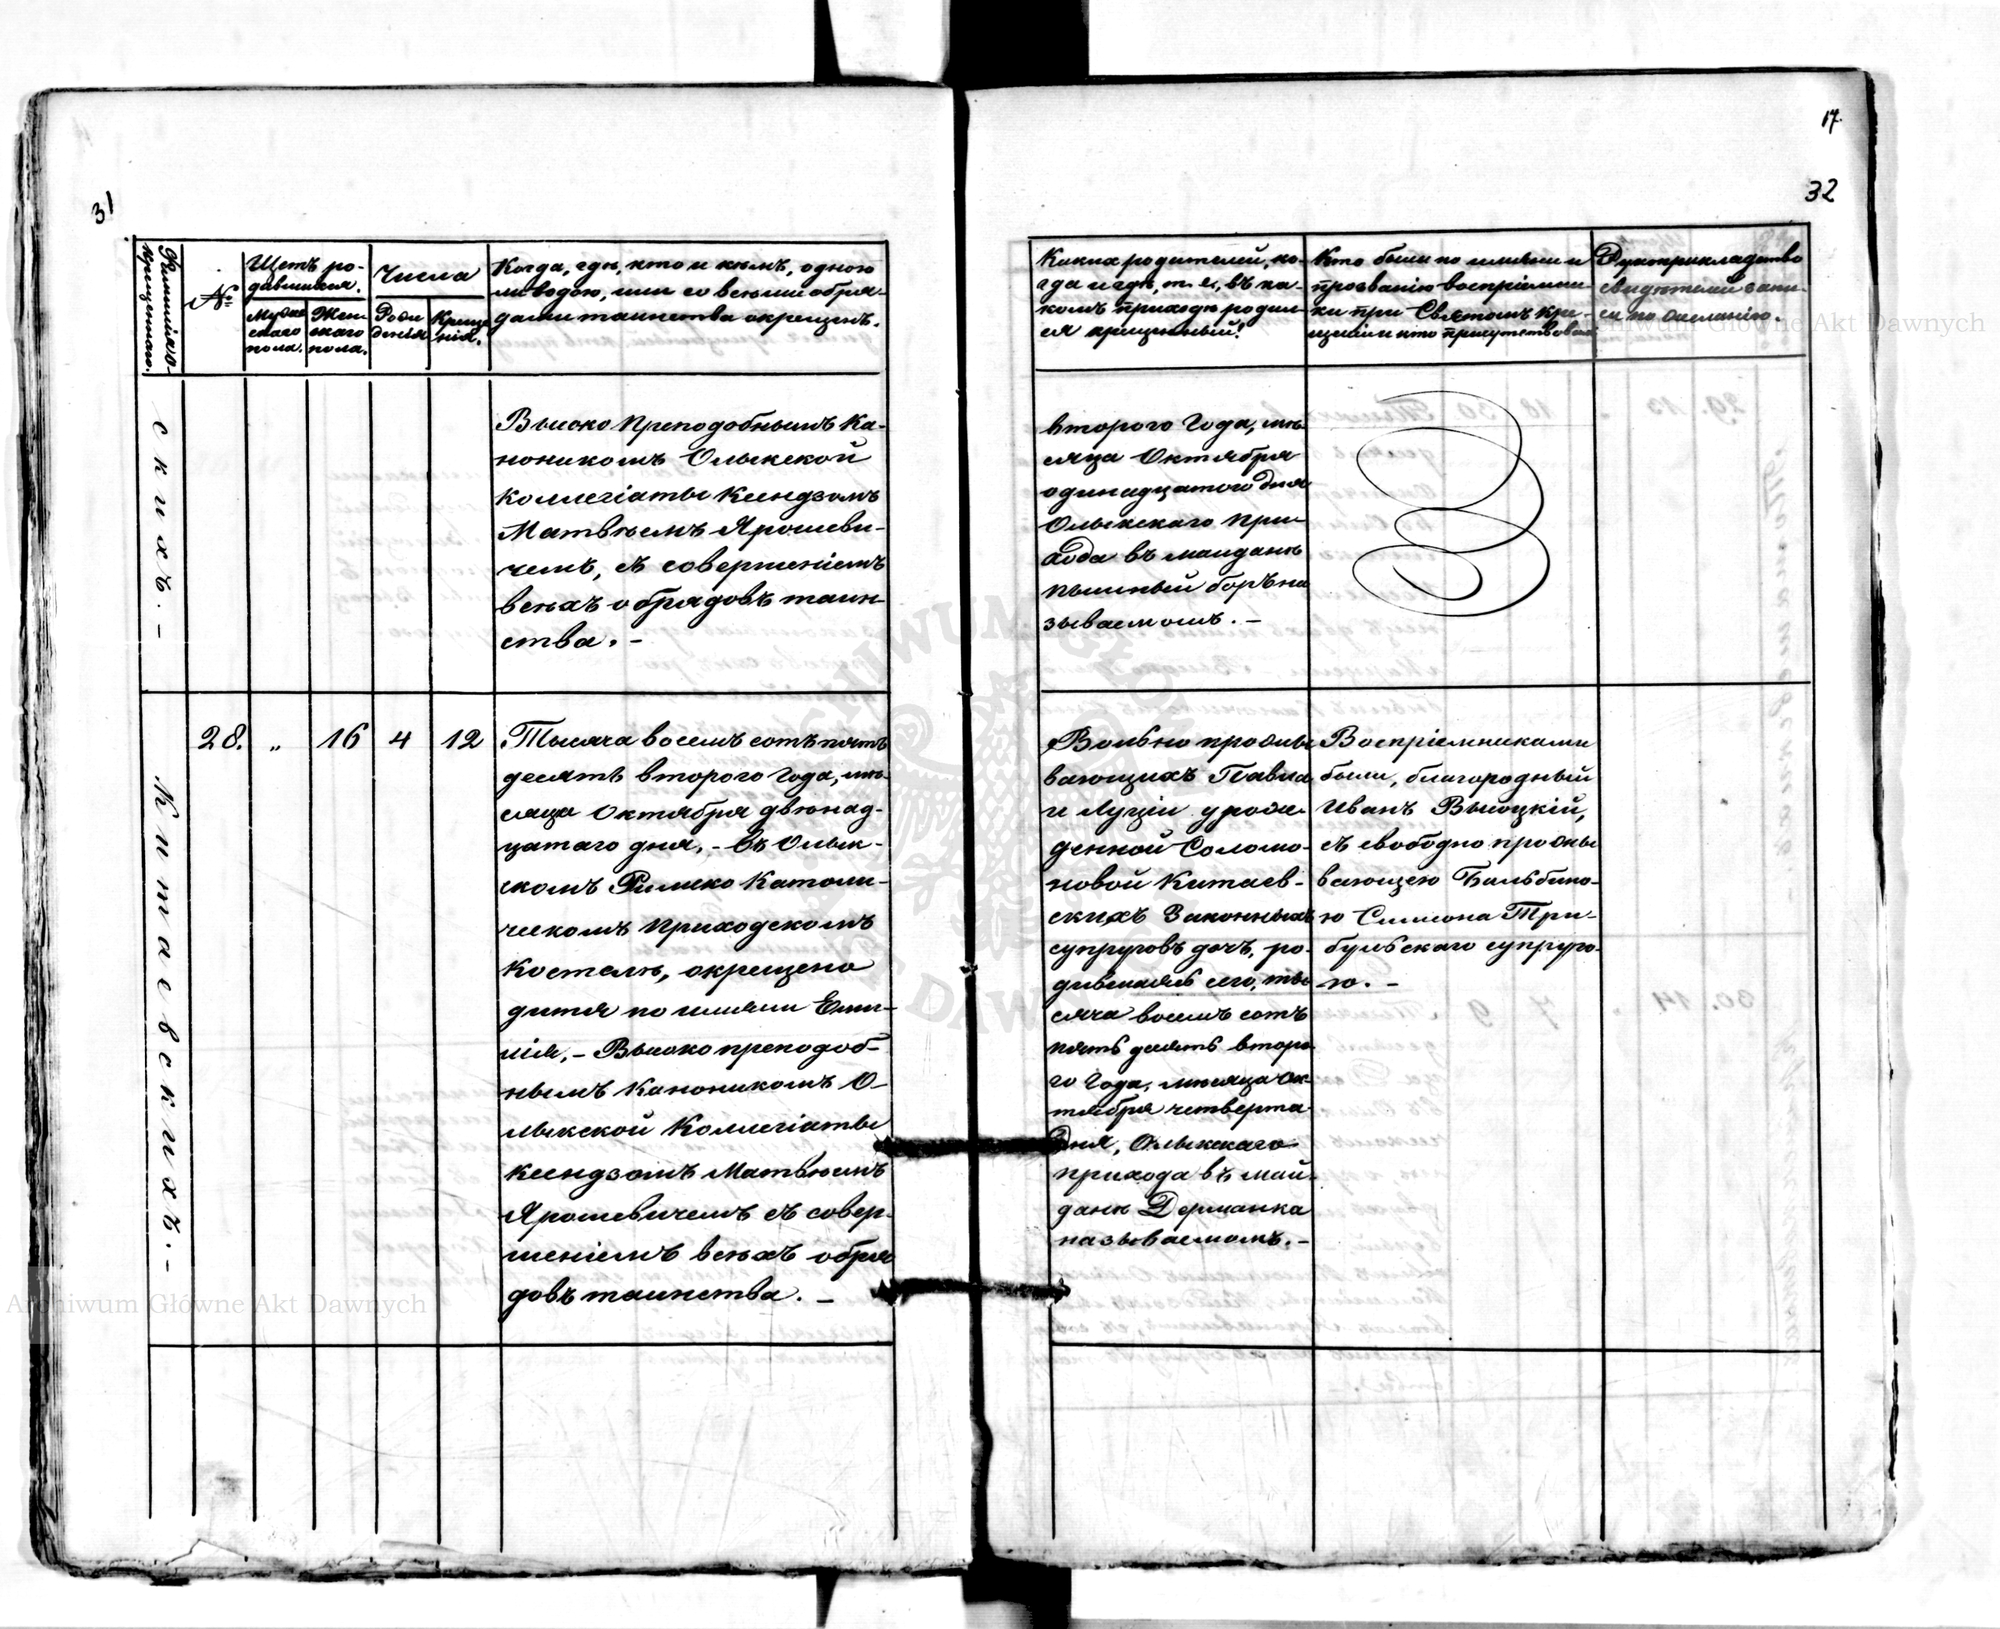 31
Фамилія о-
крещеннаго.
№
Щетъ ро-
дившихся.
Мужес-
скаго
пола.
Жен-
скаго
пола.
Числа
Рож-
денія
Креще-
нія.
Когда, гдѣ, кто и кѣмъ, одною
ли водою, или со всѣми обря-
дами таинства окрещенъ.
скихъ. –
Высоко преподобнымъ Ка-
нониκомъ Олыкской
Коллегіаты Ксендзомъ
Матвѣемъ Ярошеви-
чемъ, съ совершеніемъ
всѣхъ обрядовъ таин-
ства. –
Китаевскихъ. –
28. „ 16 4 12
Тысяча восемъ сотъ пять
десятъ второго Года, мѣ-
сяца Октября двѣнад-
цатаго дня, – въ Олык-
скомъ Римско Католи-
ческомъ Приходскомъ
Костелѣ, окрещено
дитя по имяни Еми-
лія, – Высоко преподоб-
нымъ Каноникомъ О-
лыкской Коллегіаты
Ксендзомъ Матвѣемъ
Ярошевичемъ съ совер-
шеніемъ всѣхъ обря
довъ таинства. –
17.
32
Какихъ родителей, ко-
гда и гдѣ, т. е., въ ка-
комъ приходѣ родил-
ся крещенный!
Кто были по имяни и
прозванію воспріемни-
ки при Святомъ Кре-
щеніи и кто присутствовал
Рукоприкладство
свидѣтелей запи-
си по желанію.
второго Года, мѣ-
сяца Октября
одинадцатого дня
Олыкскаго При-
хода въ майданѣ
пышный боръ на
зываемомъ. –
Вольно прожы
вающихъ Павла
и Луціи урож-
денной Соломо-
новой Китаев-
скихъ Законныхъ
супруговъ дочъ, ро-
дившаяся сего, ты
сяча восемъ сотъ
пять десятъ второ
го Года, мѣсяца Ок-
тября четверта
Дня, Олыкскаго
прихода въ май-
данѣ Дерманка
называемомъ. –
Воспріемниками
были, благородный
Иванъ Высоцкій,
съ свободно прожы
вающею Бальбино-
ю Симиона Три-
бульскаго супруго-
ю. –
Archiwum Główne Akt Dawnych